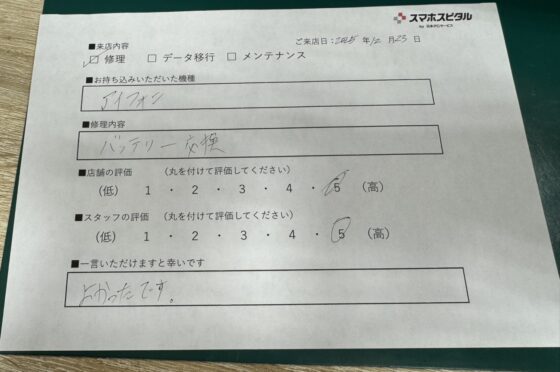 スマホスピタル
by 日本PCサービス
■来店内容
ご来店日：2025 年 12 月 23 日
☑ 修理 □ データ移行 □ メンテナンス
■お持ち込みいただいた機種
アイフォン
■修理内容
バッテリー交換
■店舗の評価 （丸を付けて評価してください）
（低） 1 ・ 2 ・ 3 ・ 4 ・ 5 （高）
■スタッフの評価 （丸を付けて評価してください）
（低） 1 ・ 2 ・ 3 ・ 4 ・ 5 （高）
■一言いただけますと幸いです
よかったです。